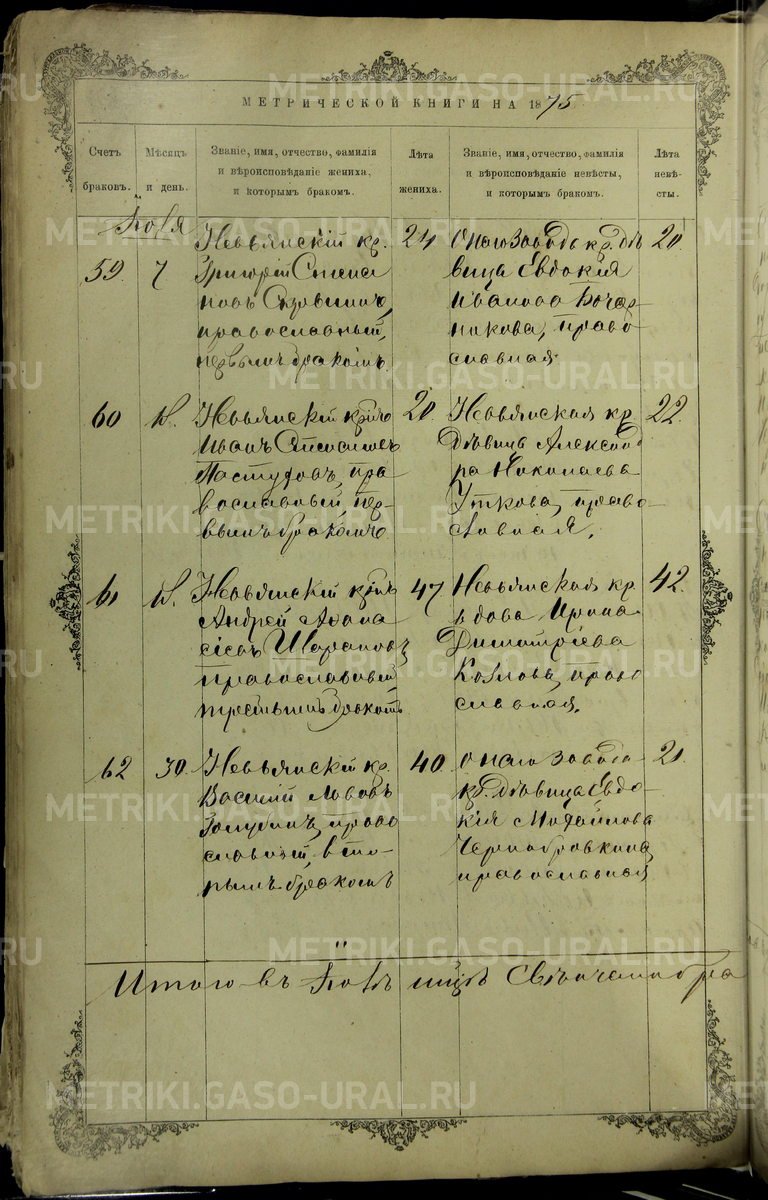 МЕТРИЧЕСКОЙ КНИГИ НА 1875
Счетъ браковъ.
Мѣсяцъ и день.
Званіе, имя, отчество, фамилія и вѣроисповѣданіе жениха, и которымъ бракомъ.
Лѣта жениха.
Званіе, имя, отчество, фамилія и вѣроисповѣданіе невѣсты, и которымъ бракомъ.
Лѣта невѣсты.
Іюля
59. 7
Невьянскій кр.
Григорій Степа
новъ
православный,
первымъ бракомъ.
24
Онаго Завода кр. дѣ
вица Евдокія
Иванова Бочар-
никова, право
славная.
20
60
Невьянскій кр.
Иванъ
Пастуховъ, пра
вославный, пер-
вымъ бракомъ
20
Невьянская кр.
Дѣвица Александ
ра Николаева
Уткова, право
славная.
22.
61
Невьянскій кр.
Андрей Афана
сіевъ Шараповъ
православный,
третьимъ бракомъ
47
Невьянская кр.
вдова Ирина
Димитріева
Козлова, право
славная.
42.
62 30.
Невьянскій кр.
Василій Львовъ
Голубинъ, право
славный, вто-
рымъ бракомъ
40.
онаго Завода
кр. дѣвица Евдо-
кія Михайлова
Чернобровкина,
православная
21
Итого въ Іюлѣ мцѣ бра
METRIKI.GASO-URAL.RU